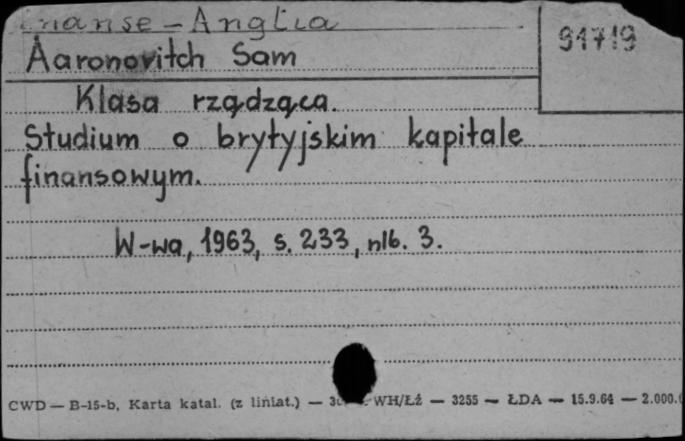 Finanse - Anglia
91719
Aaronovitch Sam
Klasa rządząca.
Studium o brytyjskim kapitale
finansowym.
W-wa, 1963, s. 233, nlb. 3.
CWD — B-15-b, Karta katal. (z liniat.) — WH/Łź — 3255 — ŁDA — 15.9.64 — 2.000.